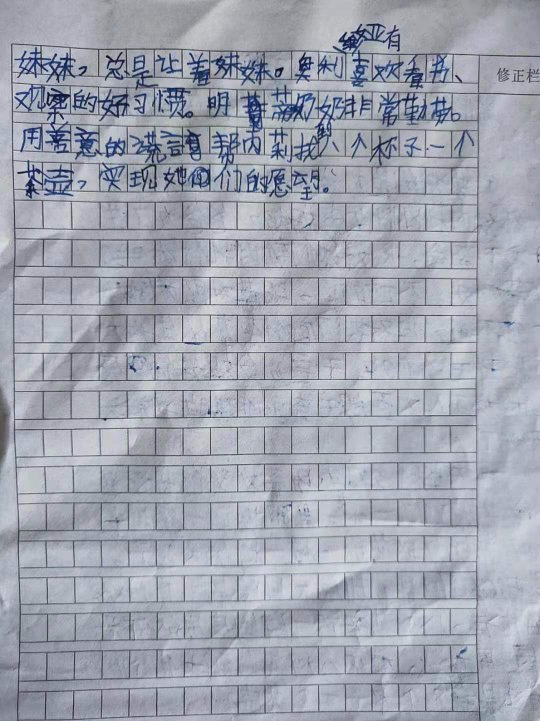 维亚有
妹妹，总是让着妹妹。奥利喜欢看书、
修正栏
观察的好习惯。明莆茀奶奶非常勤劳。
用善意的谎言帮内莉找的八个杯子一个
茶壶，实现她们的愿望。